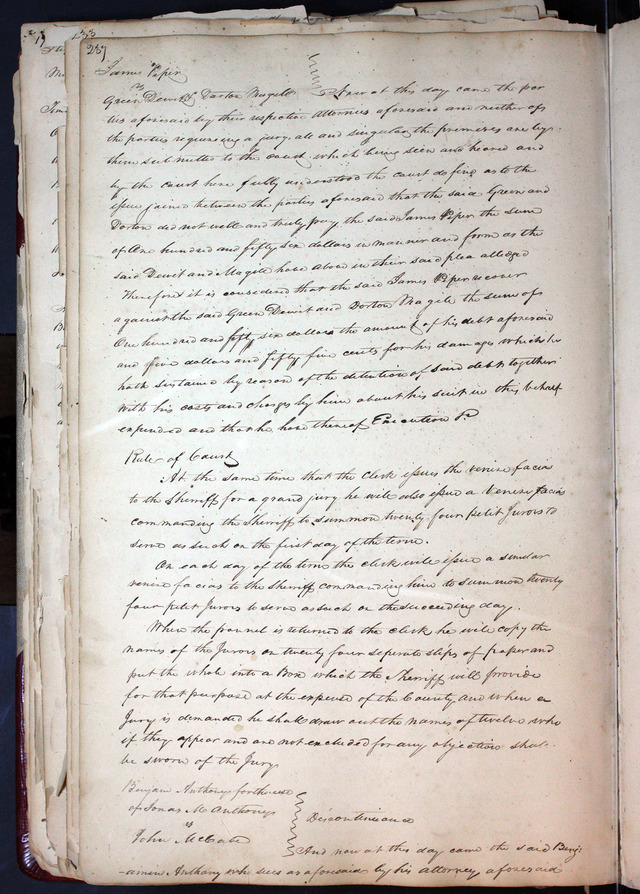 133
257
James Piper
vs
Green Dewit & Dorton Magill } Now at this day came the par
ties aforesaid by their respective Attornies aforesaid and neither of
the parties requiring a jury, all and singular the premises are by
them submitted to the court which being seen and heared and
by the court here fully understood the court do find as to the
issue joined between the parties aforesaid that the said Green and
Dorton did not well and truly pay the said James Piper the sum
of One hundred and fifty six dollars in manner and form as the
said Dewit and Magill have above in their said plea alledged
Therefore it is considered that the said James Piper recover
against the said Green Dewit and Dorton Magill the sum of
One hundred and fifty six dollars the amount of his debt aforesaid
and five dollars and fifty five cents for his damage which he
hath sustained by reason of the detention of said debt together
with his costs and charges by him about his suit in this behalf
expended and that he have thereof Execution &c
Rules of Court
At the same time that the Clerk issues the venire facias
to the Sherriff for a grand jury he will also issue a Venire facias
commanding the Sherriff to summon twenty four petit Jurors to
serve as such on the first day of the term.
On each day of the term the clerk will issue a similar
venire facias to the Sherriff commanding him to summon twenty
four petit Jurors to serve as such on the succeeding day.
When the pannel is returned to the clerk he will copy the
names of the Jurors on twenty four seperate slips of paper and
put the whole into a Box which the Sherriff will provide
for that purpose at the expense of the County and when a
Jury is demanded he shall draw out the names of twelve who
if they appear and are not excluded for any objection shall
be sworn of the Jury
Benjam Anthony for the use
of Jonas M Anthony
vs } Discontinuance
John McCabe
And now at this day came the said Benj-
-amin Anthony who sues as aforesaid by his attorney aforesaid